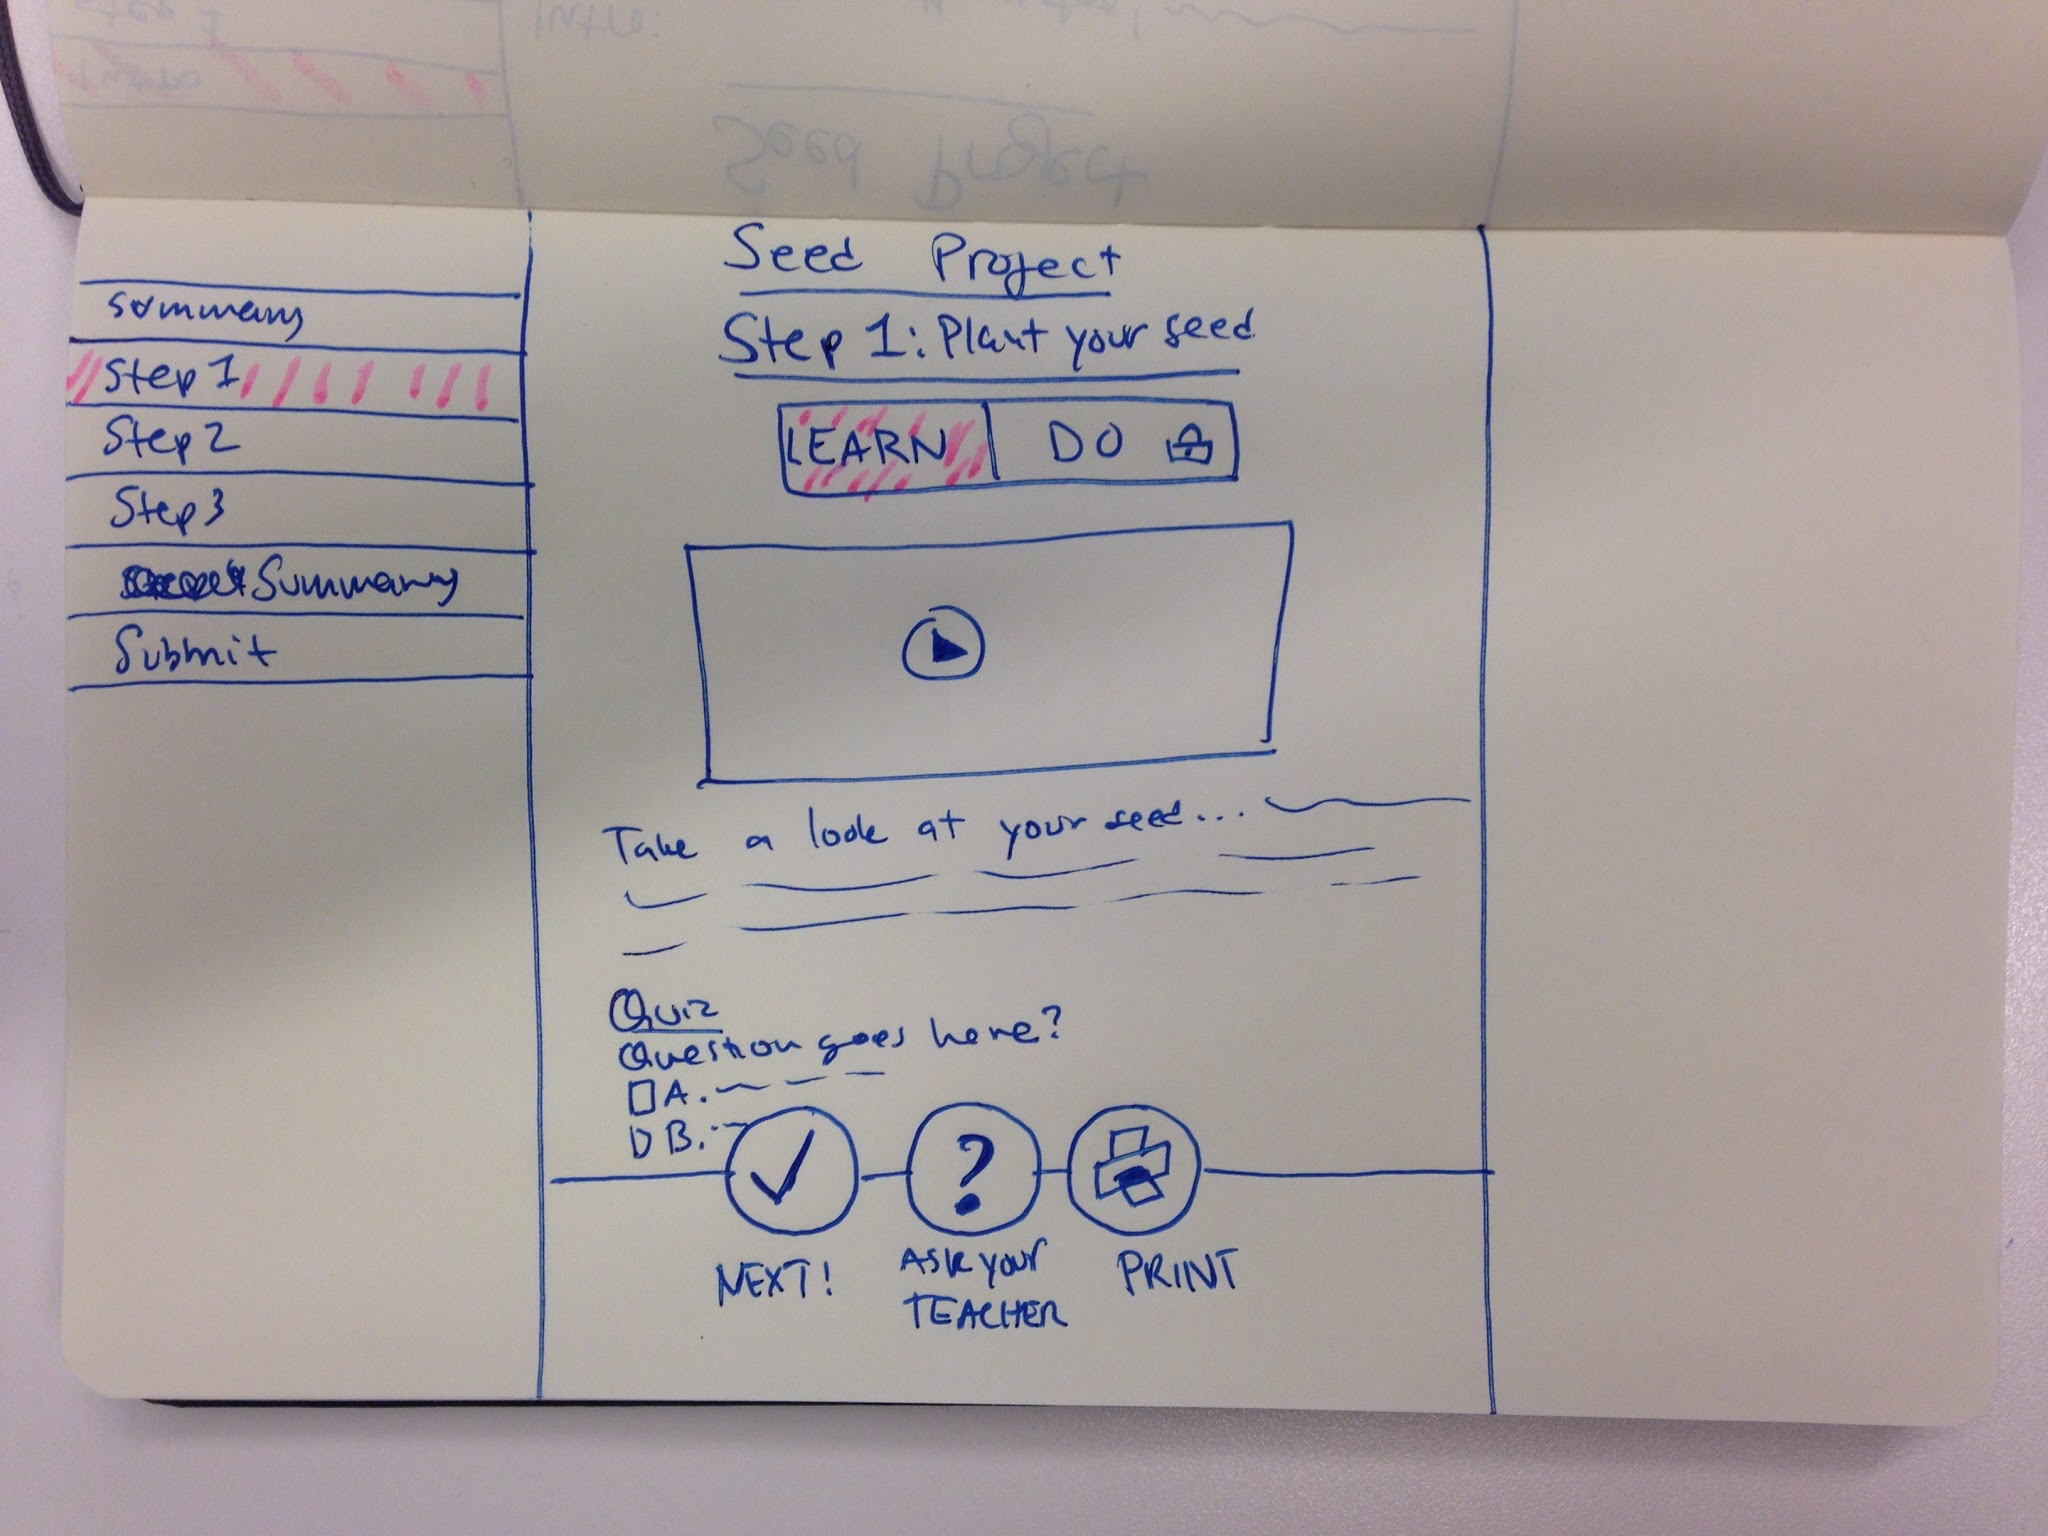 Seed Project
Summary
Step 1
Step 2
Step 3
Summary
Submit
Seed Project
Step 1: Plant your seed
LEARN
DO
Take a look at your seed...
Quiz
Question goes here?
A.
B.
?
NEXT!
ASK YOUR
TEACHER
PRINT